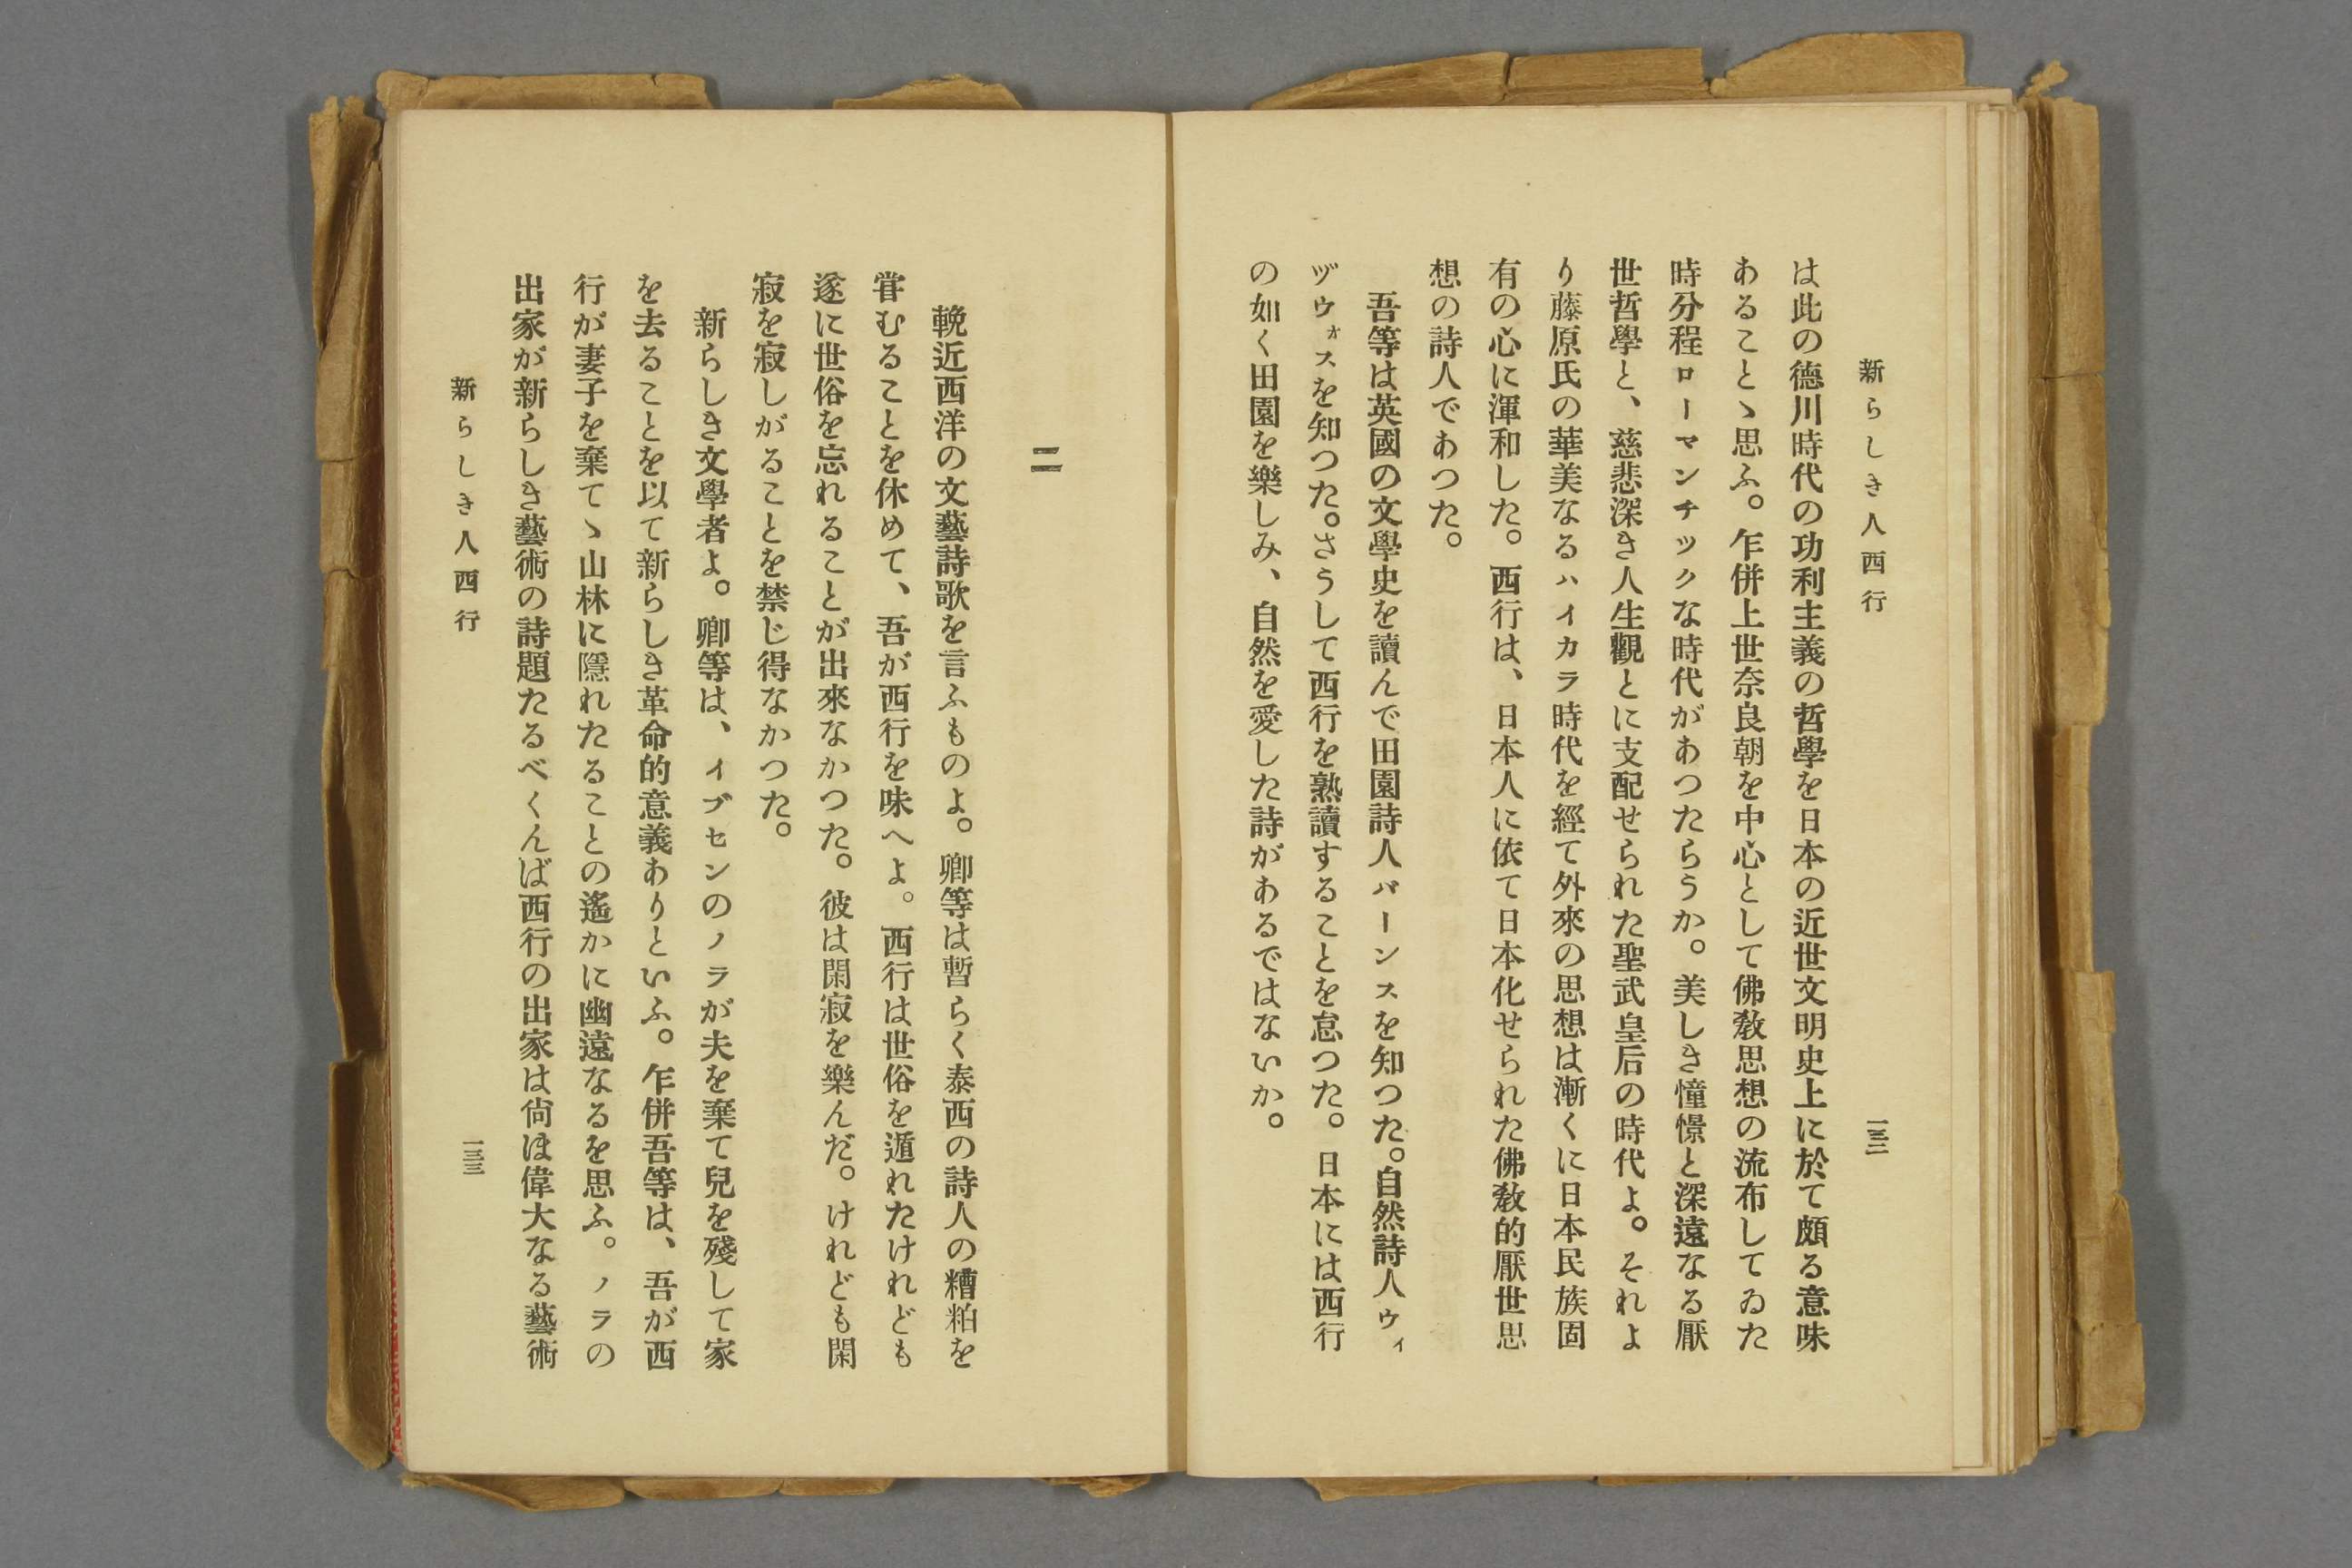 新らしき人西行
一三二
は此の德川時代の功利主義の哲學を日本の近世文明史上に於て頗る意味
あることゝ思ふ。乍併上世奈良朝を中心として佛敎思想の流布してゐた
時分程ローマンチックな時代があつたらうか。美しき憧憬と深遠なる厭
世哲學と、慈悲深き人生觀とに支配せられた聖武皇后の時代よ。それよ
り藤原氏の華美なるハイカラ時代を經て外來の思想は漸くに日本民族固
有の心に渾和した。西行は、日本人に依て日本化せられた佛敎的厭世思
想の詩人であつた。
吾等は英國の文學史を讀んで田園詩人バーンスを知つた。自然詩人ウィ
ヅウォスを知つた。さうして西行を熟讀することを怠つた。日本には西行
の如く田園を樂しみ、自然を愛した詩があるではないか。
二
輓近西洋の文藝詩歌を言ふものよ。卿等は暫らく泰西の詩人の糟粕を
甞むることを休めて、吾が西行を味へよ。西行は世俗を遁れたけれども
遂に世俗を忘れることが出來なかつた。彼は閑寂を樂んだ。けれども閑
寂を寂しがることを禁じ得なかつた。
新らしき文學者よ。卿等は、イブセンのノラが夫を棄て兒を殘して家
を去ることを以て新らしき革命的意義ありといふ。乍併吾等は、吾が西
行が妻子を棄てゝ山林に隱れたることの遙かに幽遠なるを思ふ。ノラの
出家が新らしき藝術の詩題たるべくんば西行の出家は尙ほ偉大なる藝術
新らしき人西行
一三三